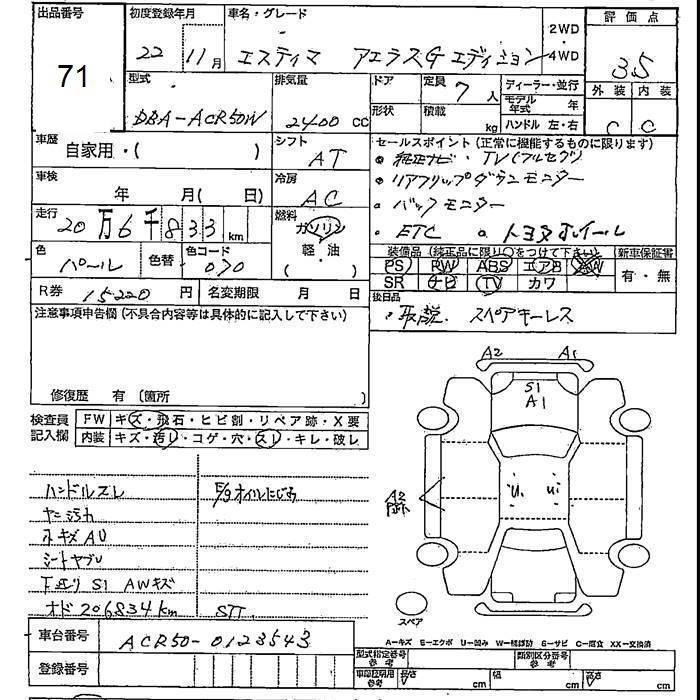 出品番号
71
初度登録年月
22 11月
車名・グレード
エスティマ アエラスGエディション
2WD
4WD
評価点
3.5
外装 内装
C C
型式
DBA-ACR50W
排気量
2400 cc
ドア
形状
定員 7人
積載 kg
ディーラー・並行
モデル年式 年
ハンドル 左・右
車歴
自家用・( )
シフト
AT
車検
年 月( 日)
冷房
AC
走行
20万6千833km
燃料
ガソリン
軽・油
( )
セールスポイント(正常に機能するものに限ります)
純正ナビ・TV(フルセグ)
リアフリップダウンモニター
バックモニター
ETC トヨタホイール
色
パール
色替
色コード
070
装備品(純正品に限り○をつけて下さい)
PS PW ABS エアB AW
SR ナビ TV カワ
新車保証書
有・無
R券 15220円
名変期限 月 日
後日品
取説. スペアキーレス
注意事項申告欄(不具合内容等は具体的に記入して下さい)
修復歴 有 (箇所 )
検査員記入欄
FW キズ・飛石・ヒビ割・リペア跡・X要
内装 キズ・汚レ・コゲ・穴・スレ・キレ・破レ
ハンドルズレ
E/gオイルにじみ
ヤニ汚れ
小キズAU
シートヤブレ
下廻りS1 AWキズ
オド206834km
A2 A1
S1
A1
U. Ui
A2
スペア
A-キズ E-エクボ U-凹み W-補修跡 S-サビ C-腐食 XX-交換済
車台番号
ACR50-0123543
登録番号
型式指定番号
参考
類別区分番号
参考
車庫証明用
参考
長さ cm
幅 cm
高さ cm